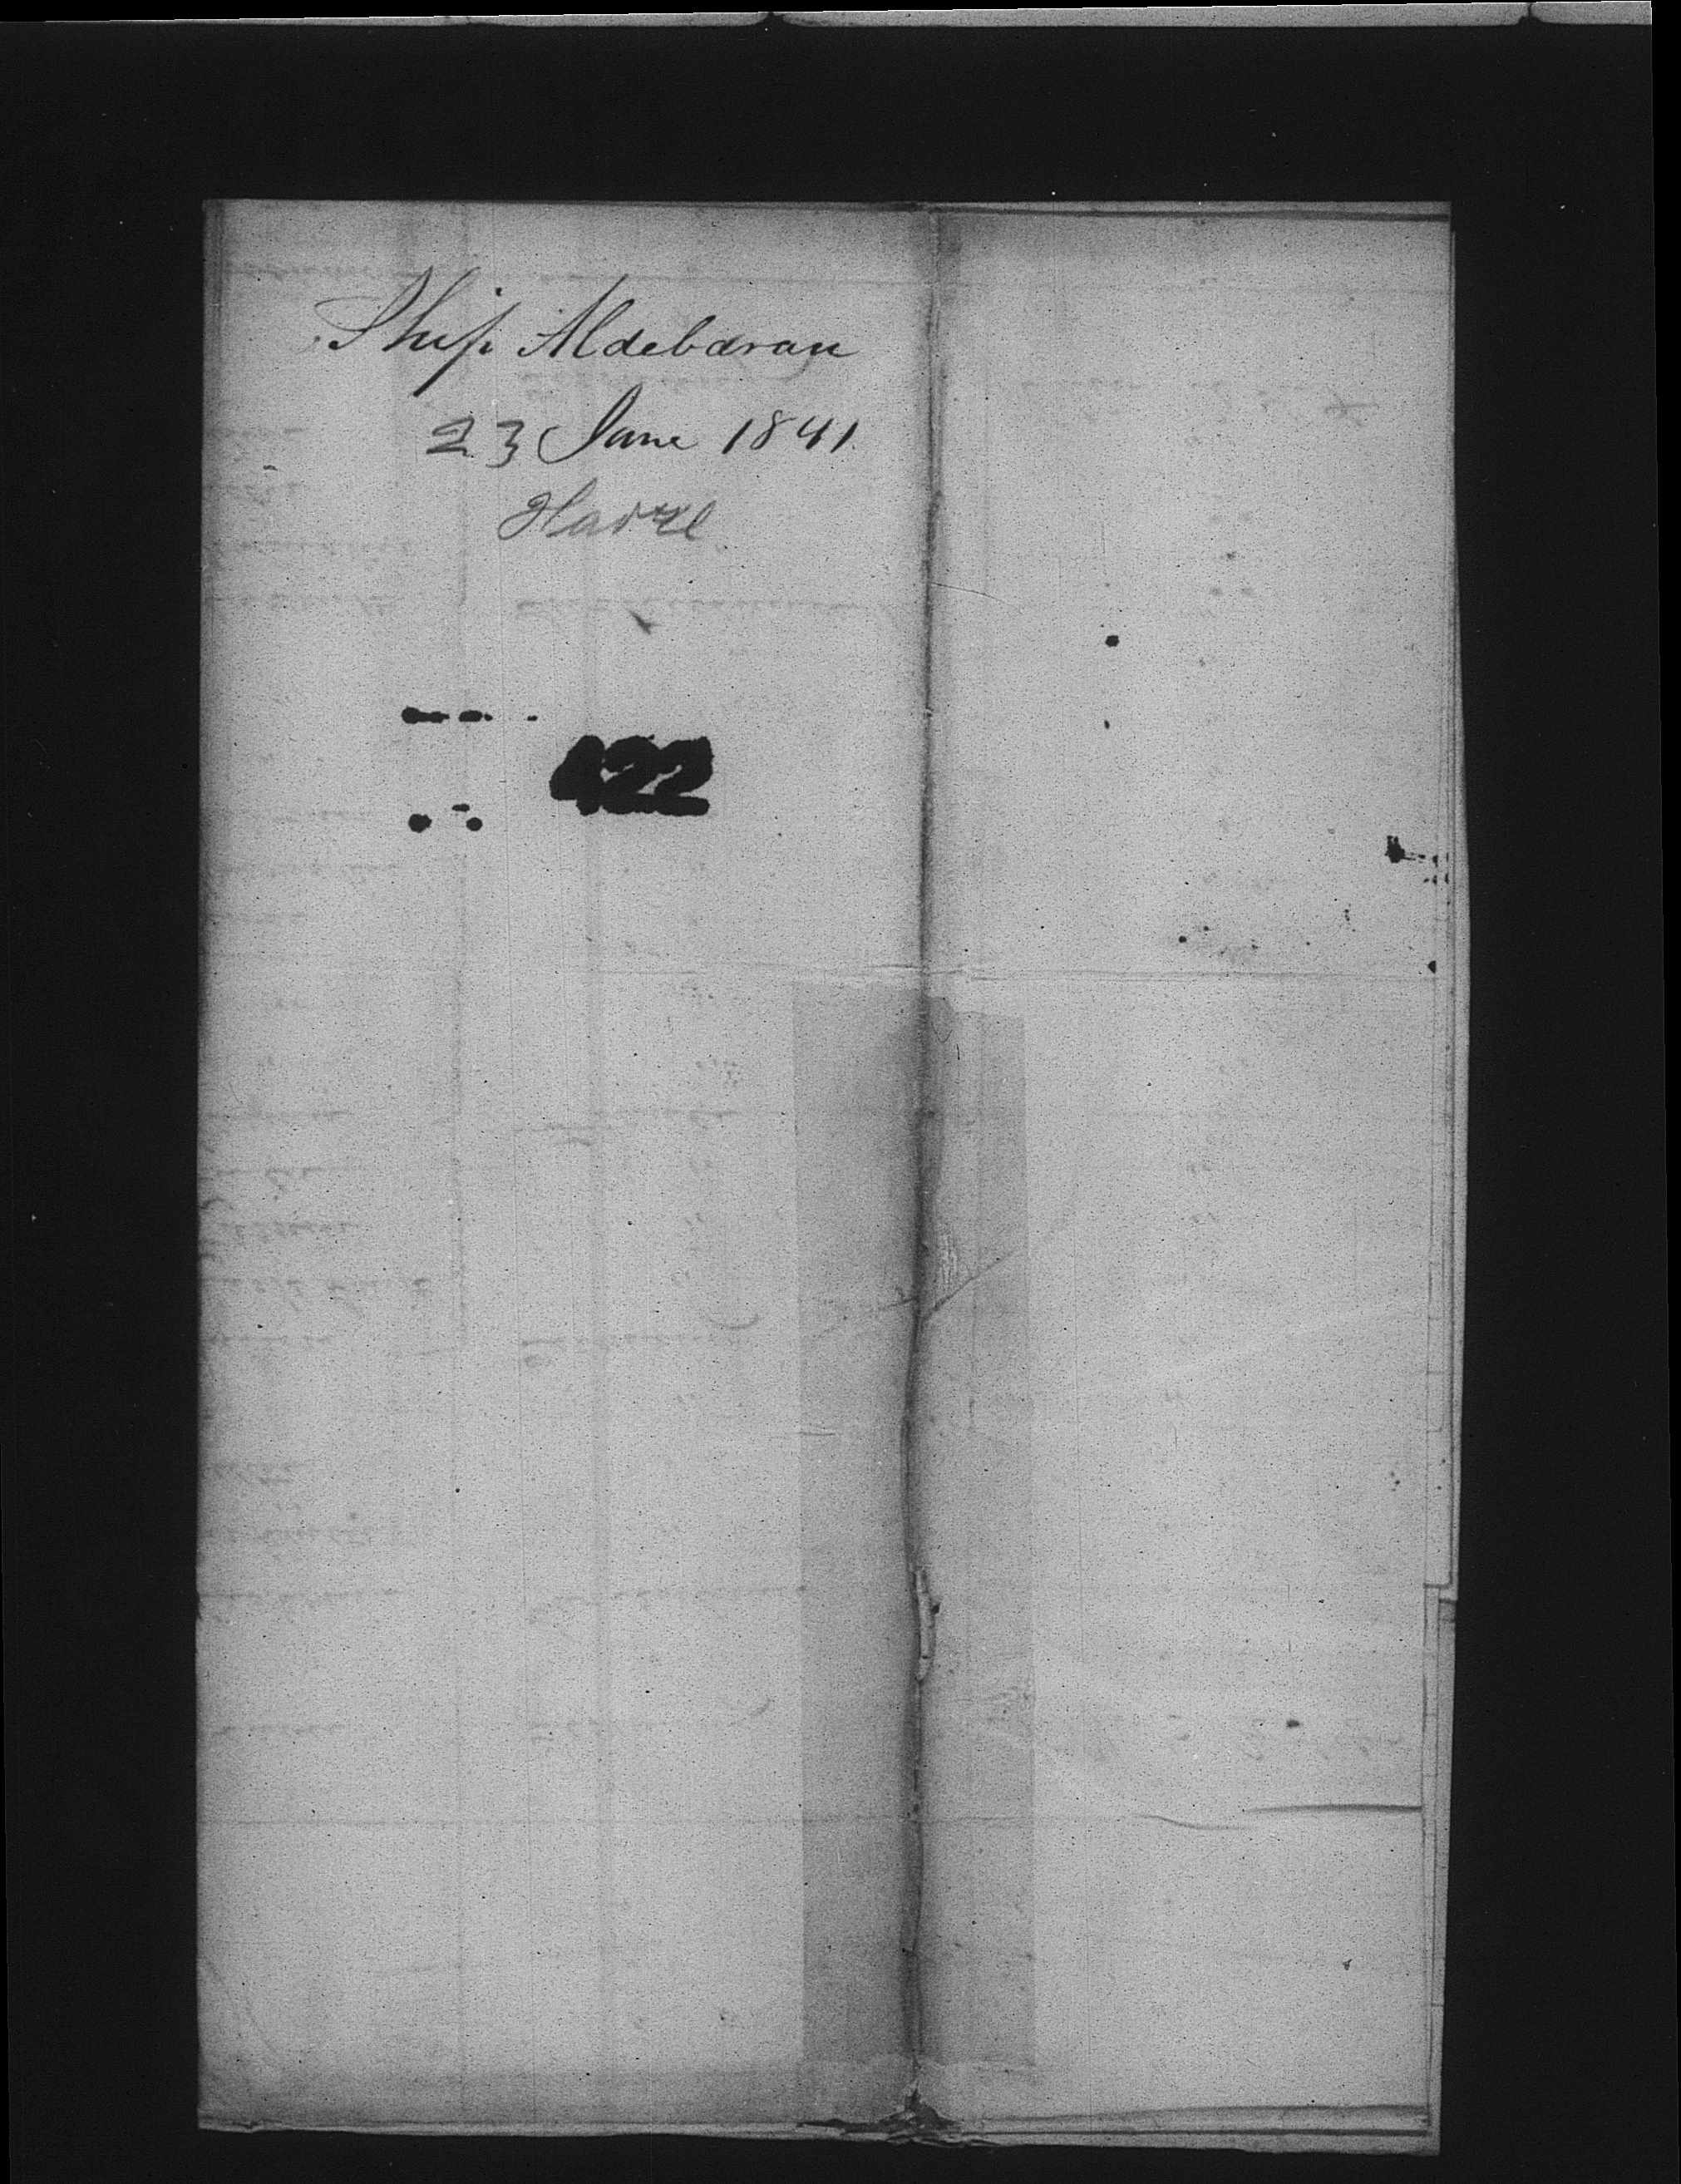 Ship Aldebaran
23 June 1841
Havre
422